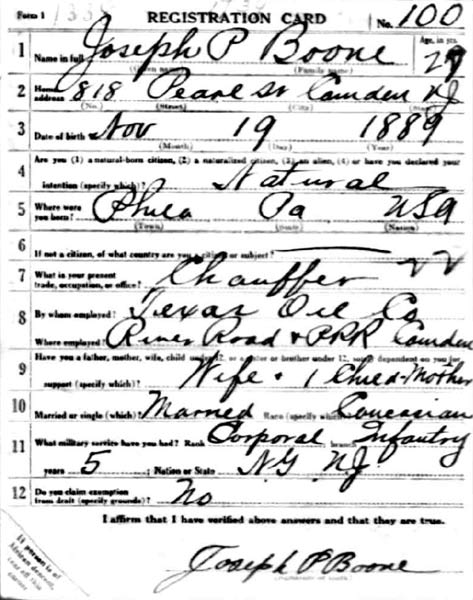 Form 1 REGISTRATION CARD No. 100
1 Name in full Joseph P Boone Age, in yrs. 27
(Given name) (Family name)
2 Home address 818 Pearl St Camden NJ
(No.) (Street) (City) (State)
3 Date of birth Nov 19 1889
(Month) (Day) (Year)
4 Are you (1) a natural-born citizen, (2) a naturalized citizen, (3) an alien, (4) or have you declared your
intention (specify which)? Natural
5 Where were you born? Phila Pa USA
(Town) (State) (Nation)
6 If not a citizen, of what country are you a citizen or subject?
7 What is your present trade, occupation, or office? Chauffer
8 By whom employed? Texas Oil Co
Where employed? River Road & PRR Camden
9 Have you a father, mother, wife, child under 12, or a sister or brother under 12, solely dependent on you for
support (specify which)? Wife + 1 Child-Mother
10 Married or single (which)? Married Race (specify which)? Caucasian
11 What military service have you had? Rank Corporal branch Infantry
years 5 ; Nation or State NG NJ
12 Do you claim exemption from draft (specify grounds)? No
I affirm that I have verified above answers and that they are true.
Joseph P Boone
If person is of
African descent,
tear off this
corner